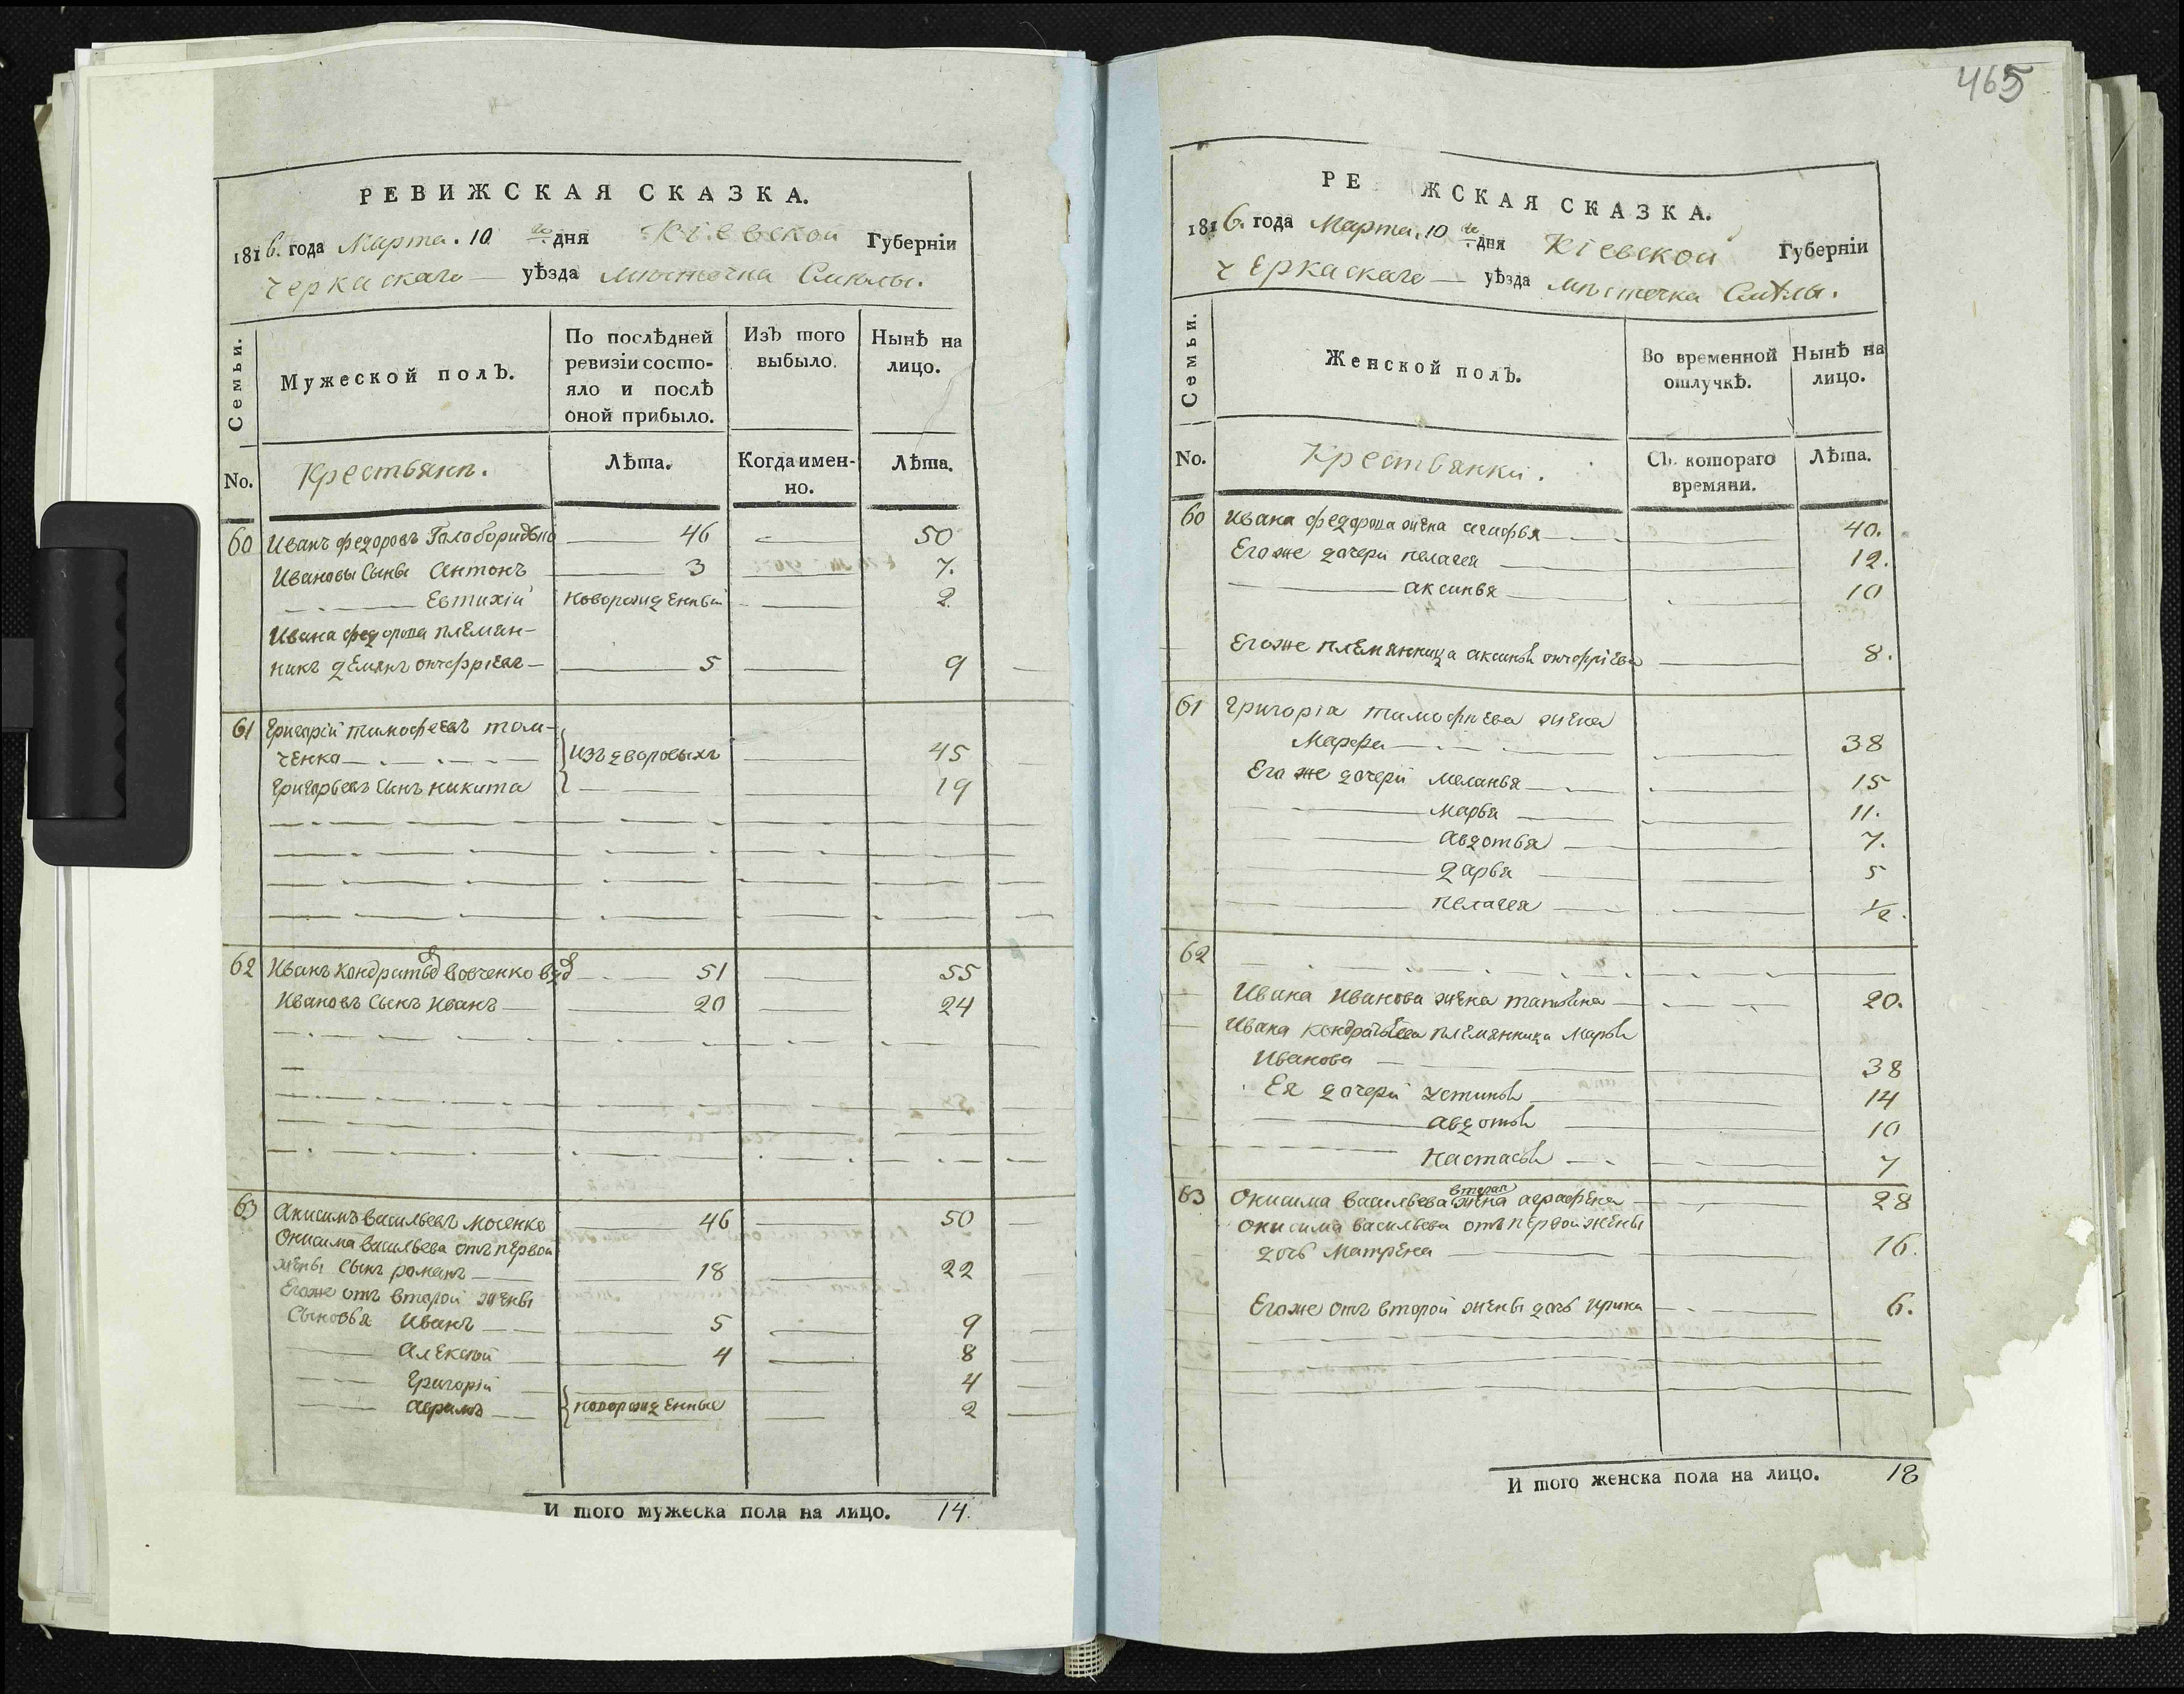 465
РЕВИЖСКАЯ СКАЗКА.
1816. года Марта. 10 го дня Кіевской Губерніи
Черкаскаго уѣзда мѣстечка Смѣлы.
Семьи.
Мужеской полЪ.
По послѣдней
ревизіи состо-
яло и послѣ
оной прибыло.
ИзЪ того
выбыло.
Нынѣ на
лицо.
No.
Крестьянѣ.
Лѣта.
Когда имен-
но.
Лѣта.
60 Иванъ федоровъ Голобородько 46 50
Ивановы Сыны Антонъ 3 7.
Евтихій новорожденный 2
Ивана федорова племян-
никъ демянъ онофріевъ 5 9
61 Григорій тимофеевъ том-
ченко изъ дворовыхъ 45
Григорьевъ Сынъ никита 19
62 Иванъ Кондратьевъ вовченко вдовъ 51 55
Ивановъ Сынъ Иванъ 20 24
63 Анисимъ васильевъ мосенко 46 50
Онисима васильева отъ первой
жены Сынъ романъ 18 22
Егоже отъ второй жены
Сыновья Иванъ 5 9
Алексѣй 4 8
Григорій 4
Аврамъ новорожденные 2
И того мужеска пола на лицо. 14.
РЕ ЖСКАЯ СКАЗКА.
1816. года Марта. 10 го дня Кіевской Губерніи
Черкаскаго уѣзда мѣстечка Смѣлы.
Семьи.
Женской полЪ.
Во временной
отлучкѣ.
НынѣЪ на
лицо.
No.
Крестьянки.
СЪ котораго
времяни.
Лѣта.
60 Ивана федорова жена агафья 40.
Егоже дочери пелагея 12.
аксинья 10
Егоже племянница аксинья онофріева 8.
61 Григорія тимофѣева жена
Марфа 38
Его же дочери меланья 15
марья 11.
Авдотья 7.
дарья 5
пелагея 1/2.
62
Ивана Иванова жена татьяна 20.
Ивана кондратьева племянница Марья
Иванова 38
Ея дочери устинья 14
авдотья 10
настасья 7
63 Онисима васильева вторая жена аграфена 28
Онисима васильева отъ первой жены
дочь матрена 16.
Егоже отъ второй жены дочь ирина 6.
И того женска пола на лицо. 18